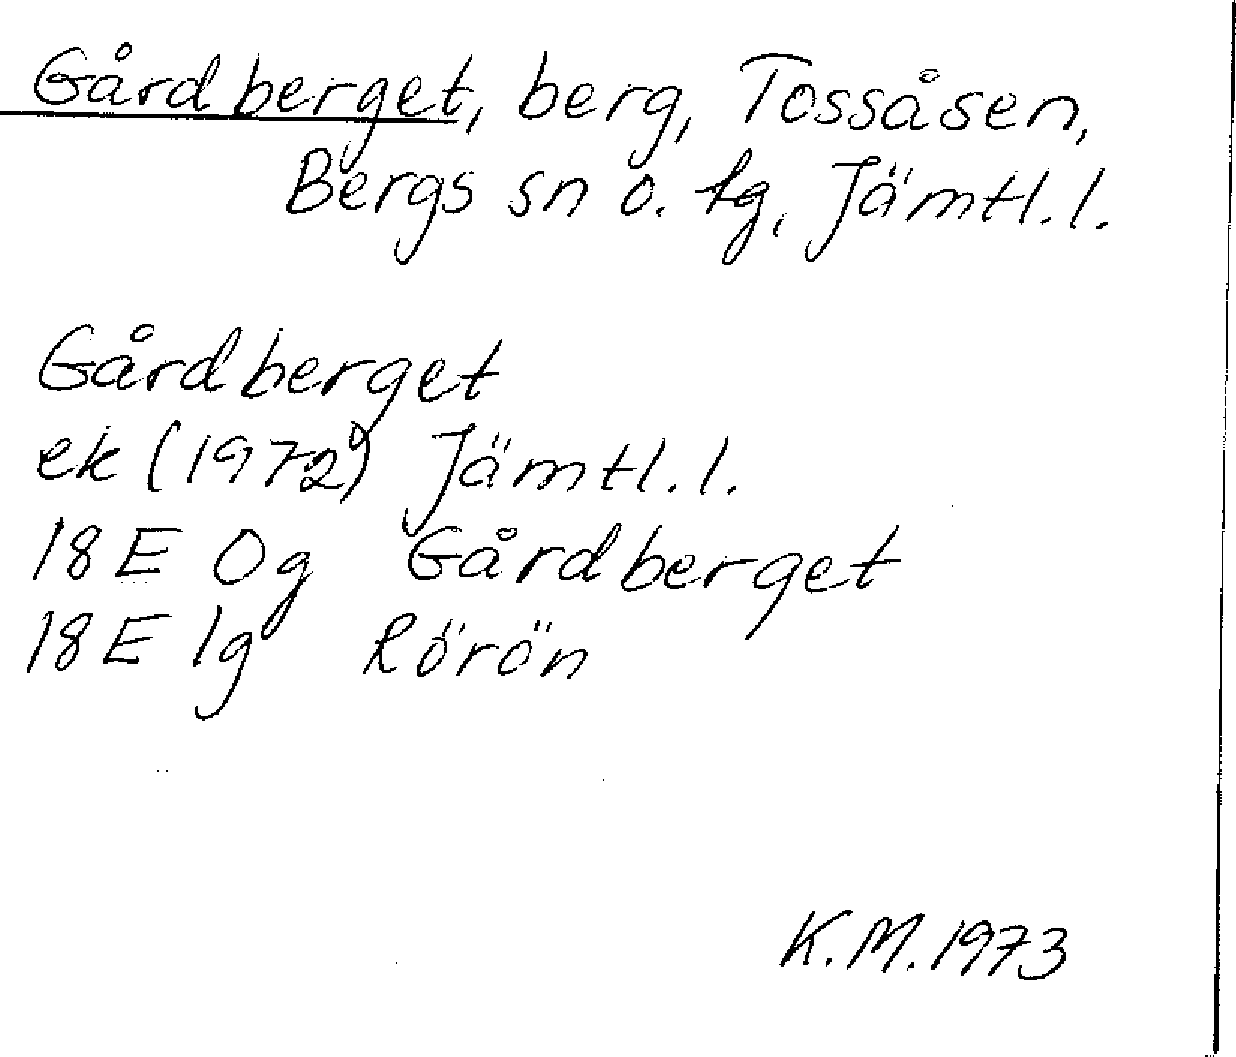 Gårdberget, berg, Tossåsen,
Bergs sn o. tg, Jämtl. l.
Gårdberget
ek (1972) Jämtl. l.
18E 0g Gårdberget
18E 1g Rörön
K. M. 1973